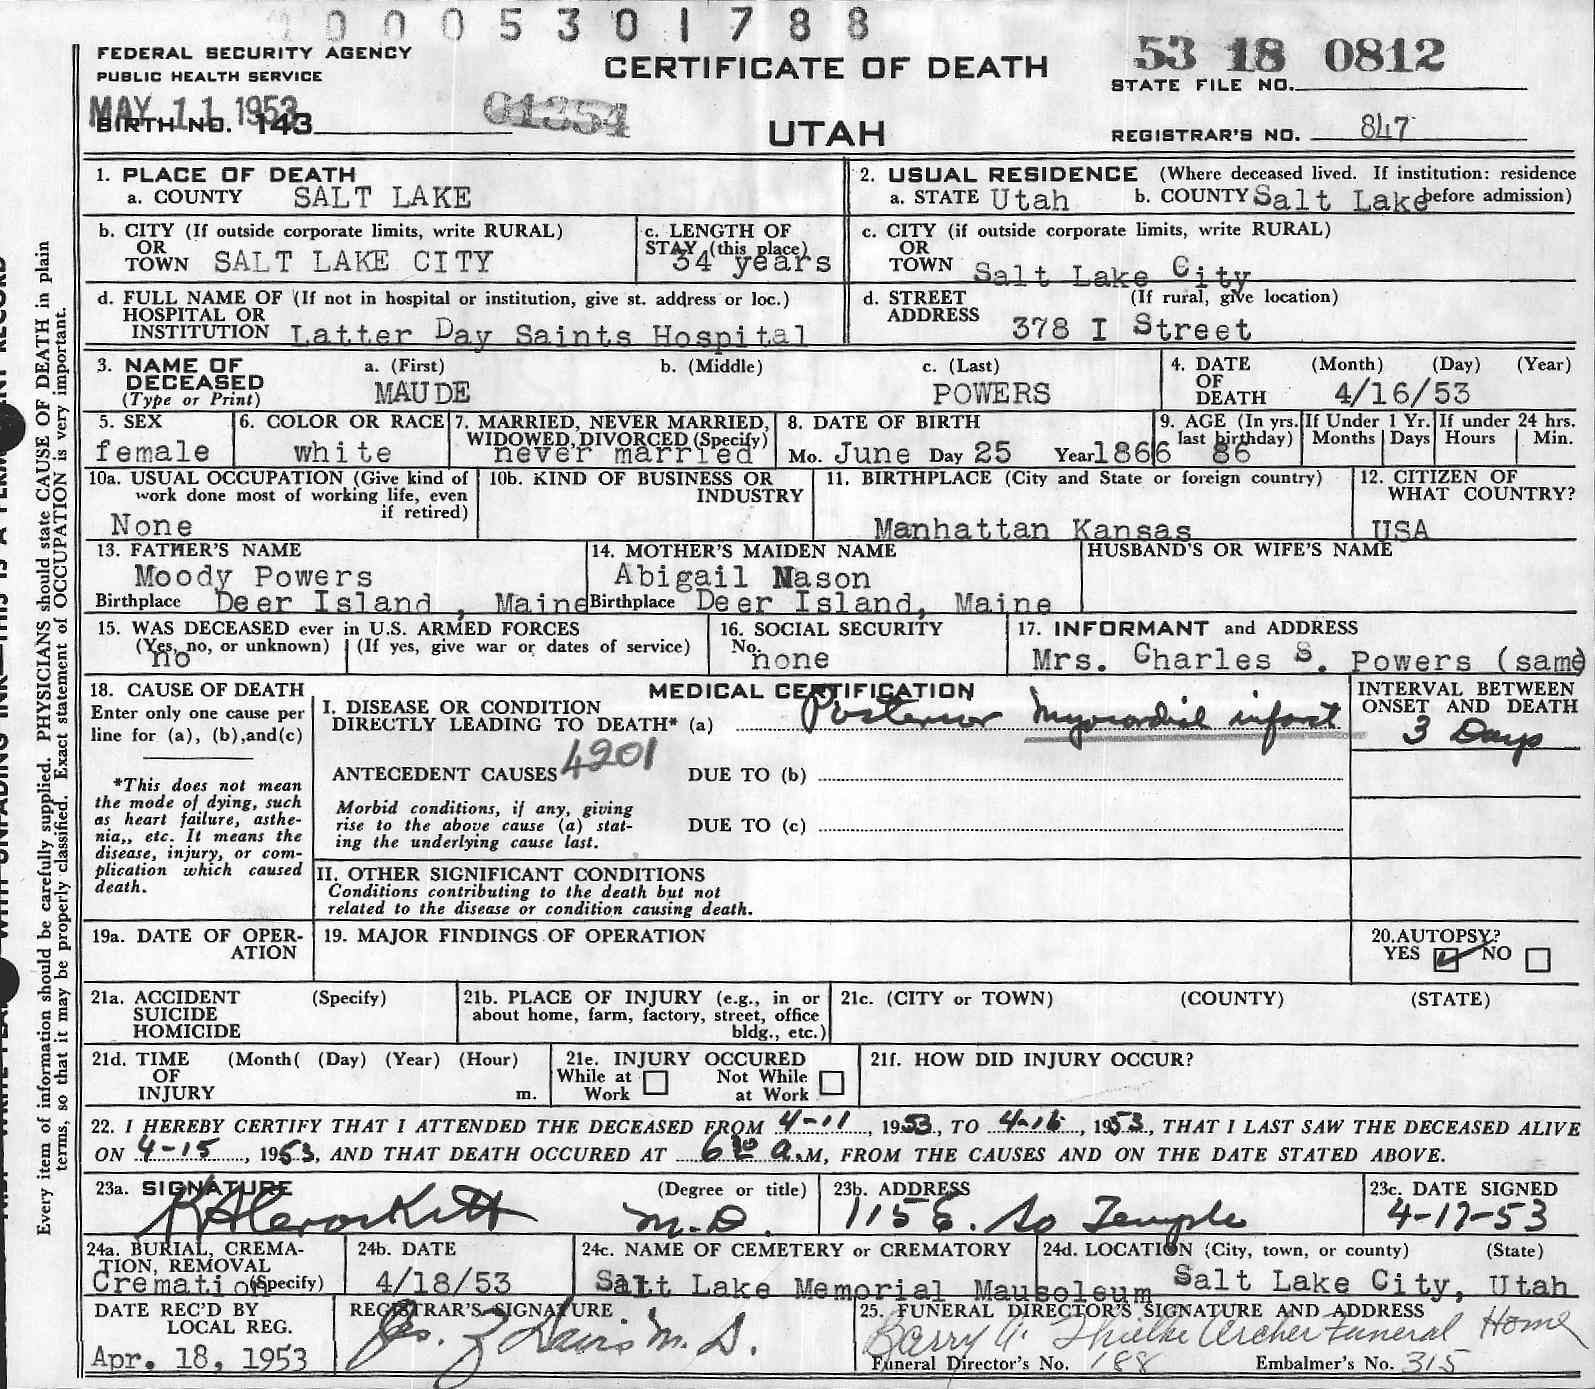 0005301788
FEDERAL SECURITY AGENCY
PUBLIC HEALTH SERVICE
CERTIFICATE OF DEATH
UTAH
53 18 0812
STATE FILE NO.
MAY 11 1953
BIRTH NO. 143
G1354
REGISTRAR'S NO. 847
Every item of information should be carefully supplied. PHYSICIANS should state CAUSE OF DEATH in plain
terms, so that it may be properly classified. Exact statement of OCCUPATION is very important.
1. PLACE OF DEATH
a. COUNTY SALT LAKE
2. USUAL RESIDENCE (Where deceased lived. If institution: residence
a. STATE Utah b. COUNTY Salt Lake before admission)
b. CITY (If outside corporate limits, write RURAL)
OR
TOWN SALT LAKE CITY
c. LENGTH OF
STAY (this place)
34 years
c. CITY (if outside corporate limits, write RURAL)
OR
TOWN Salt Lake City
d. FULL NAME OF (If not in hospital or institution, give st. address or loc.)
HOSPITAL OR
INSTITUTION Latter Day Saints Hospital
d. STREET (If rural, give location)
ADDRESS 378 I Street
3. NAME OF DECEASED
(Type or Print)
a. (First) b. (Middle) c. (Last)
MAUDE POWERS
4. DATE OF DEATH (Month) (Day) (Year)
4/16/53
5. SEX
female
6. COLOR OR RACE
white
7. MARRIED, NEVER MARRIED,
WIDOWED, DIVORCED (Specify)
never married
8. DATE OF BIRTH
Mo. June Day 25 Year 1866
9. AGE (In yrs. last birthday)
86
If Under 1 Yr. If under 24 hrs.
Months Days Hours Min.
10a. USUAL OCCUPATION (Give kind of
work done most of working life, even
if retired)
None
10b. KIND OF BUSINESS OR
INDUSTRY
11. BIRTHPLACE (City and State or foreign country)
Manhattan Kansas
12. CITIZEN OF
WHAT COUNTRY?
USA
13. FATHER'S NAME
Moody Powers
Birthplace Deer Island , Maine
14. MOTHER'S MAIDEN NAME
Abigail Nason
Birthplace Deer Island, Maine
HUSBAND'S OR WIFE'S NAME
15. WAS DECEASED ever in U.S. ARMED FORCES
(Yes, no, or unknown) (If yes, give war or dates of service)
no
16. SOCIAL SECURITY
No. none
17. INFORMANT and ADDRESS
Mrs. Charles S. Powers (same)
18. CAUSE OF DEATH
Enter only one cause per
line for (a), (b),and(c)
*This does not mean
the mode of dying, such
as heart failure, asthe-
nia,, etc. It means the
disease, injury, or com-
plication which caused
death.
MEDICAL CERTIFICATION
I. DISEASE OR CONDITION
DIRECTLY LEADING TO DEATH* (a) Posterior Myocardial infarct
INTERVAL BETWEEN
ONSET AND DEATH
3 Days
4201
ANTECEDENT CAUSES DUE TO (b)
Morbid conditions, if any, giving
rise to the above cause (a) stat-
ing the underlying cause last.
DUE TO (c)
II. OTHER SIGNIFICANT CONDITIONS
Conditions contributing to the death but not
related to the disease or condition causing death.
19a. DATE OF OPER-
ATION
19. MAJOR FINDINGS OF OPERATION
20.AUTOPSY?
YES NO
21a. ACCIDENT (Specify)
SUICIDE
HOMICIDE
21b. PLACE OF INJURY (e.g., in or
about home, farm, factory, street, office
bldg., etc.)
21c. (CITY or TOWN) (COUNTY) (STATE)
21d. TIME (Month( (Day) (Year) (Hour)
OF
INJURY m.
21e. INJURY OCCURED
While at Work Not While at Work
21f. HOW DID INJURY OCCUR?
22. I HEREBY CERTIFY THAT I ATTENDED THE DECEASED FROM 4-11, 1953, TO 4-16, 1953, THAT I LAST SAW THE DECEASED ALIVE
ON 4-15, 1953, AND THAT DEATH OCCURED AT 6 30 a.M, FROM THE CAUSES AND ON THE DATE STATED ABOVE.
23a. SIGNATURE (Degree or title)
M.D.
23b. ADDRESS
115 E. So Temple
23c. DATE SIGNED
4-17-53
24a. BURIAL, CREMA-
TION, REMOVAL
Cremation (Specify)
24b. DATE
4/18/53
24c. NAME OF CEMETERY or CREMATORY
Salt Lake Memorial Mausoleum
24d. LOCATION (City, town, or county) (State)
Salt Lake City, Utah
DATE REC'D BY
LOCAL REG.
Apr. 18, 1953
REGISTRAR'S SIGNATURE
Davis M. D.
25. FUNERAL DIRECTOR'S SIGNATURE AND ADDRESS
Archer Funeral Home
Funeral Director's No. 188 Embalmer's No. 315